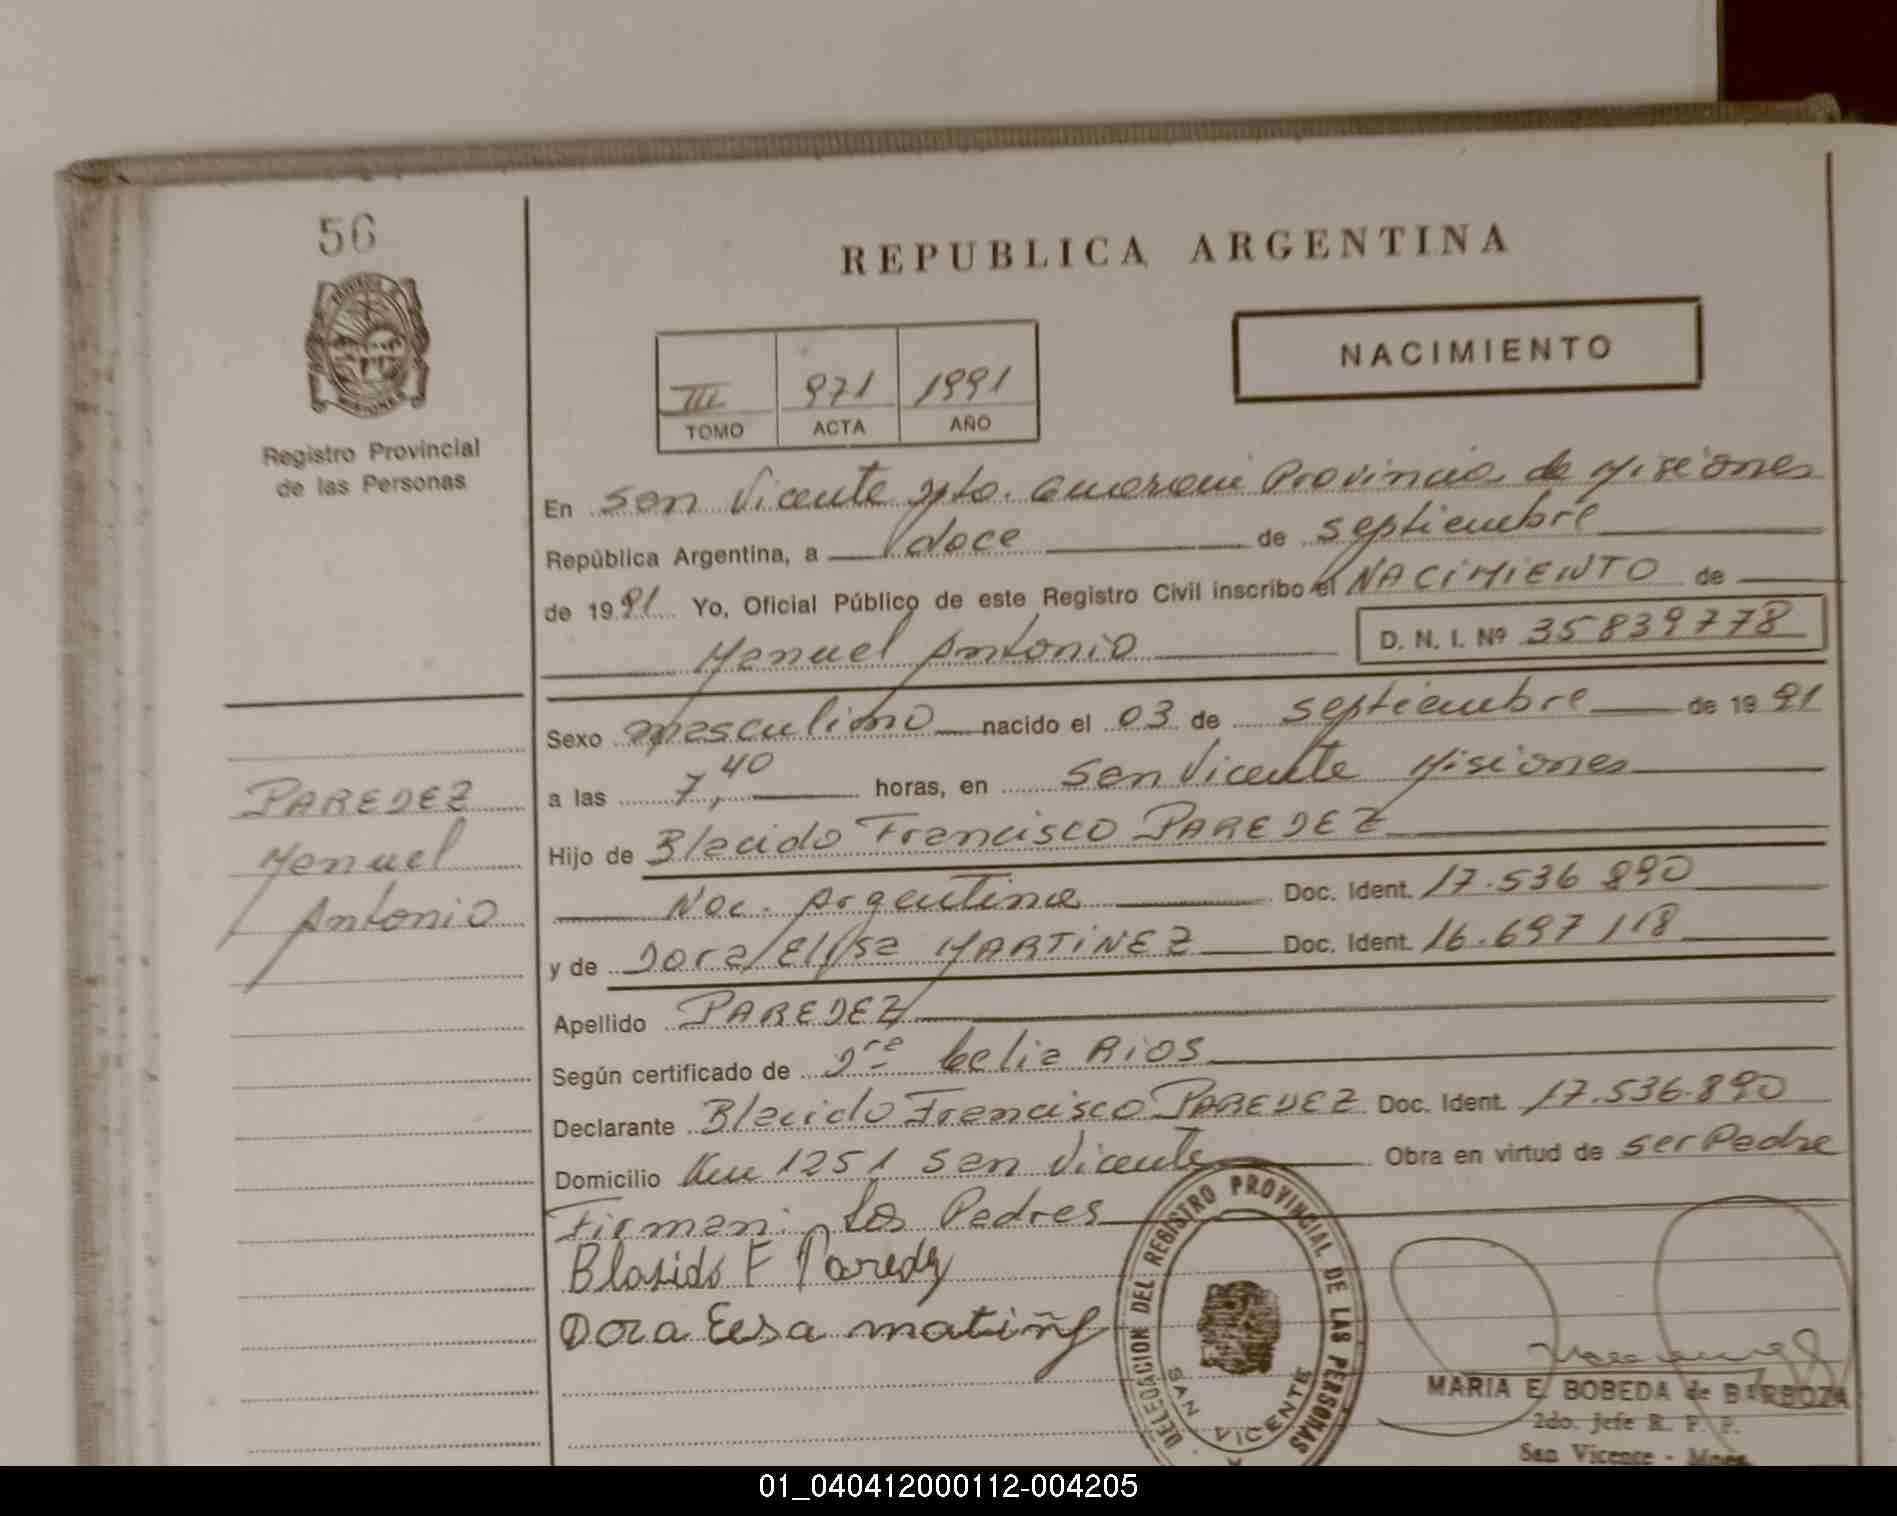 56
REPUBLICA ARGENTINA
NACIMIENTO
III 971 1991
TOMO ACTA AÑO
Registro Provincial
de las Personas
En San Vicente Dpto. Guarani Provincia de Misiones
República Argentina, a doce de septiembre
de 1991 Yo, Oficial Público de este Registro Civil inscribo el NACIMIENTO de
Manuel Antonio D. N. I. Nº 35839778
Sexo masculino nacido el 03 de septiembre de 1991
a las 7,40 horas, en San Vicente Misiones
PAREDEZ
Manuel
Antonio
Hijo de Blacido Francisco PAREDEZ
Nac. Argentina Doc. Ident. 17.536 890
y de Dora Elisa MARTINEZ Doc. Ident. 16.697 118
Apellido PAREDEZ
Según certificado de Dra Celia RIOS
Declarante Blacido Francisco PAREDEZ Doc. Ident. 17.536.890
Domicilio Km 1251 San Vicente Obra en virtud de ser Padre
Firman: Los Padres
Blasido F Paredez
Dora Elisa
DELEGACION DEL REGISTRO PROVINCIAL DE LAS PERSONAS
SAN VICENTE
MARIA E. BOBEDA de BARBOZA
2do. Jefe R. P. P.
San Vicente - Mnes.
01_040412000112-004205